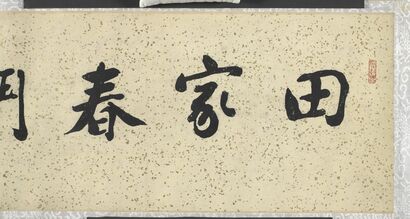 田家春